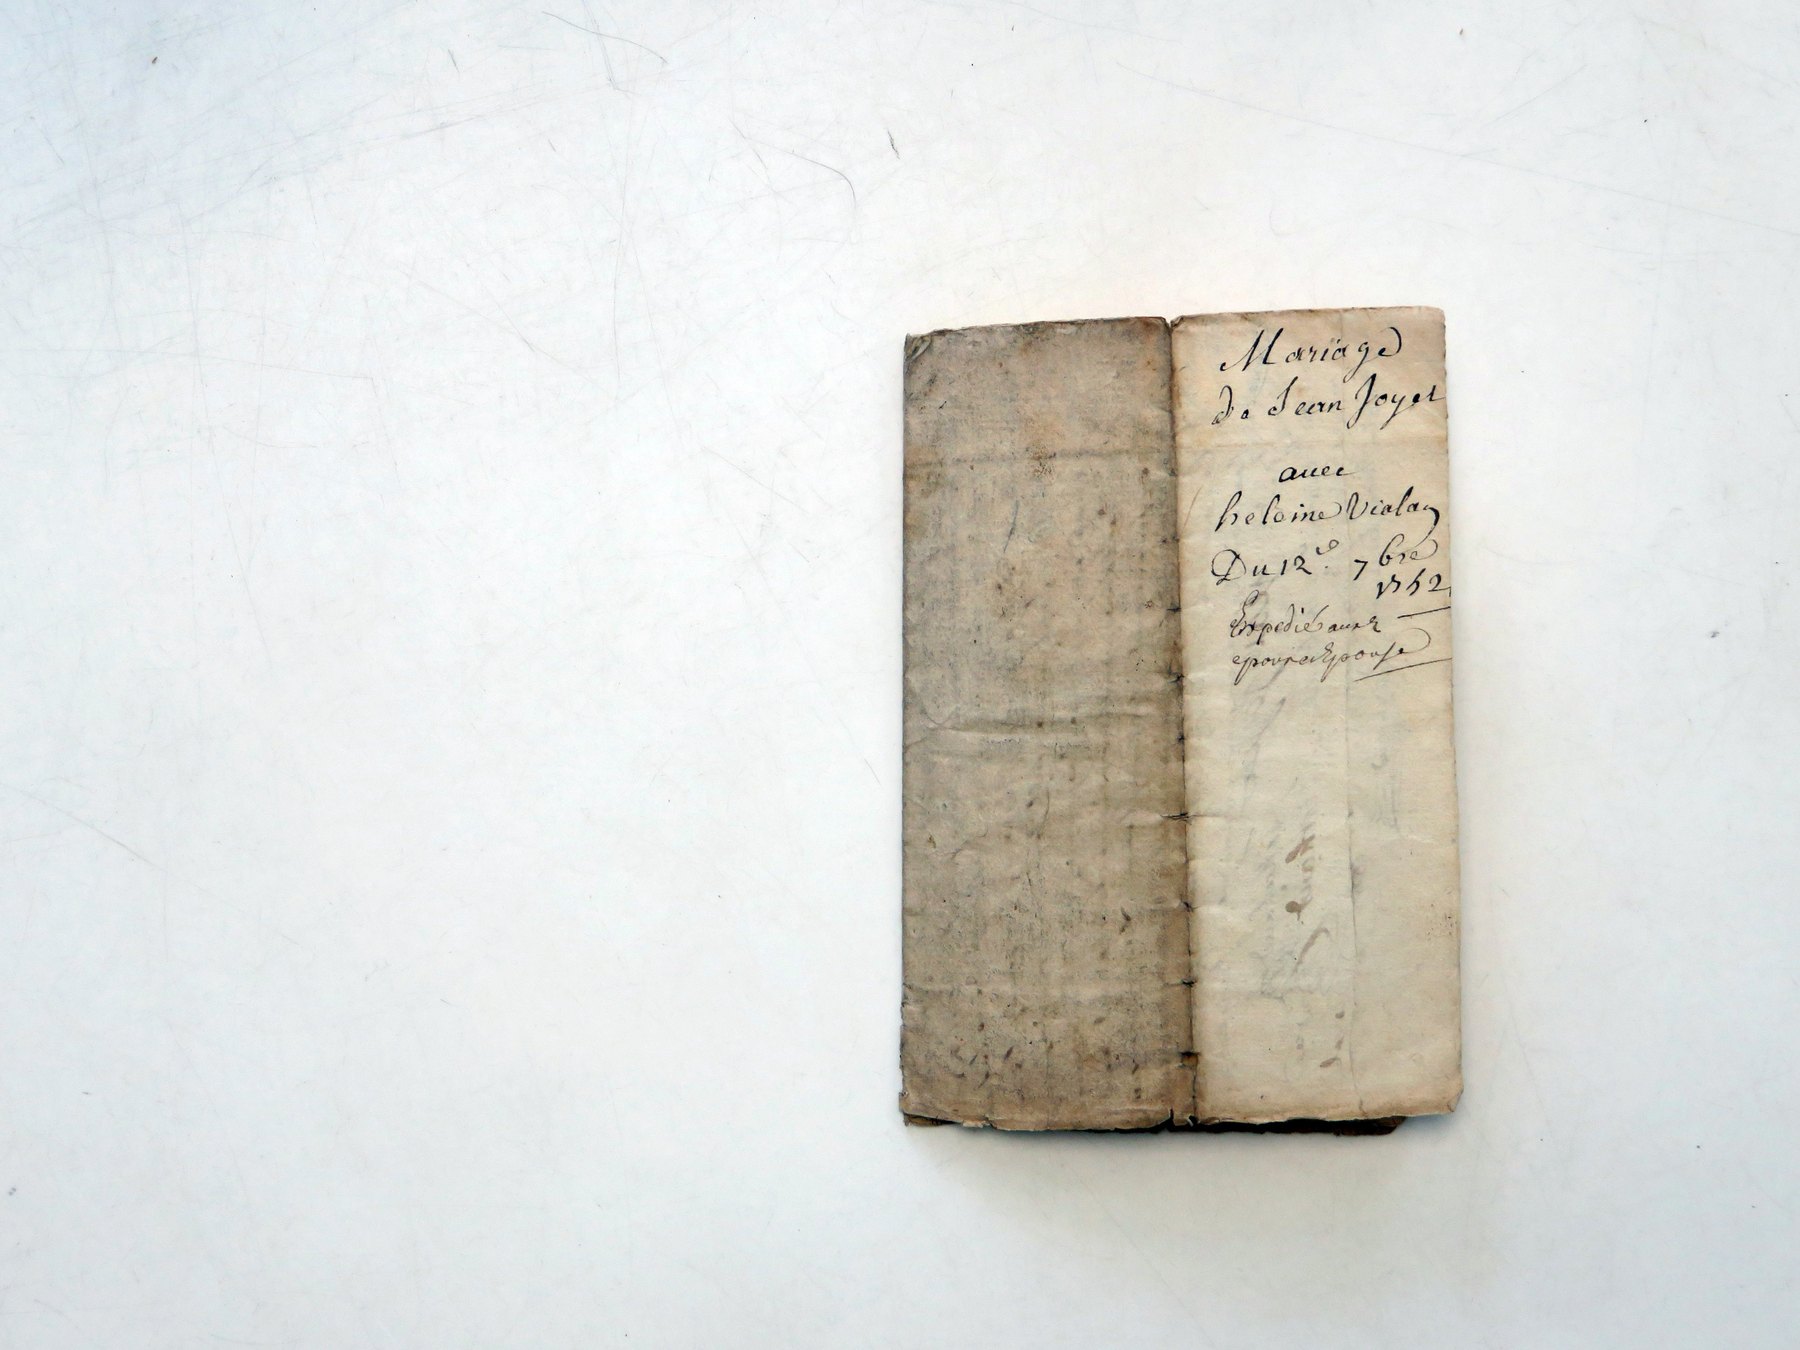 Mariage
De Jean Joyet
auec
heleine Vialay
Du 12e. 7bre
1752
Expedié aux
epoux et Epouse